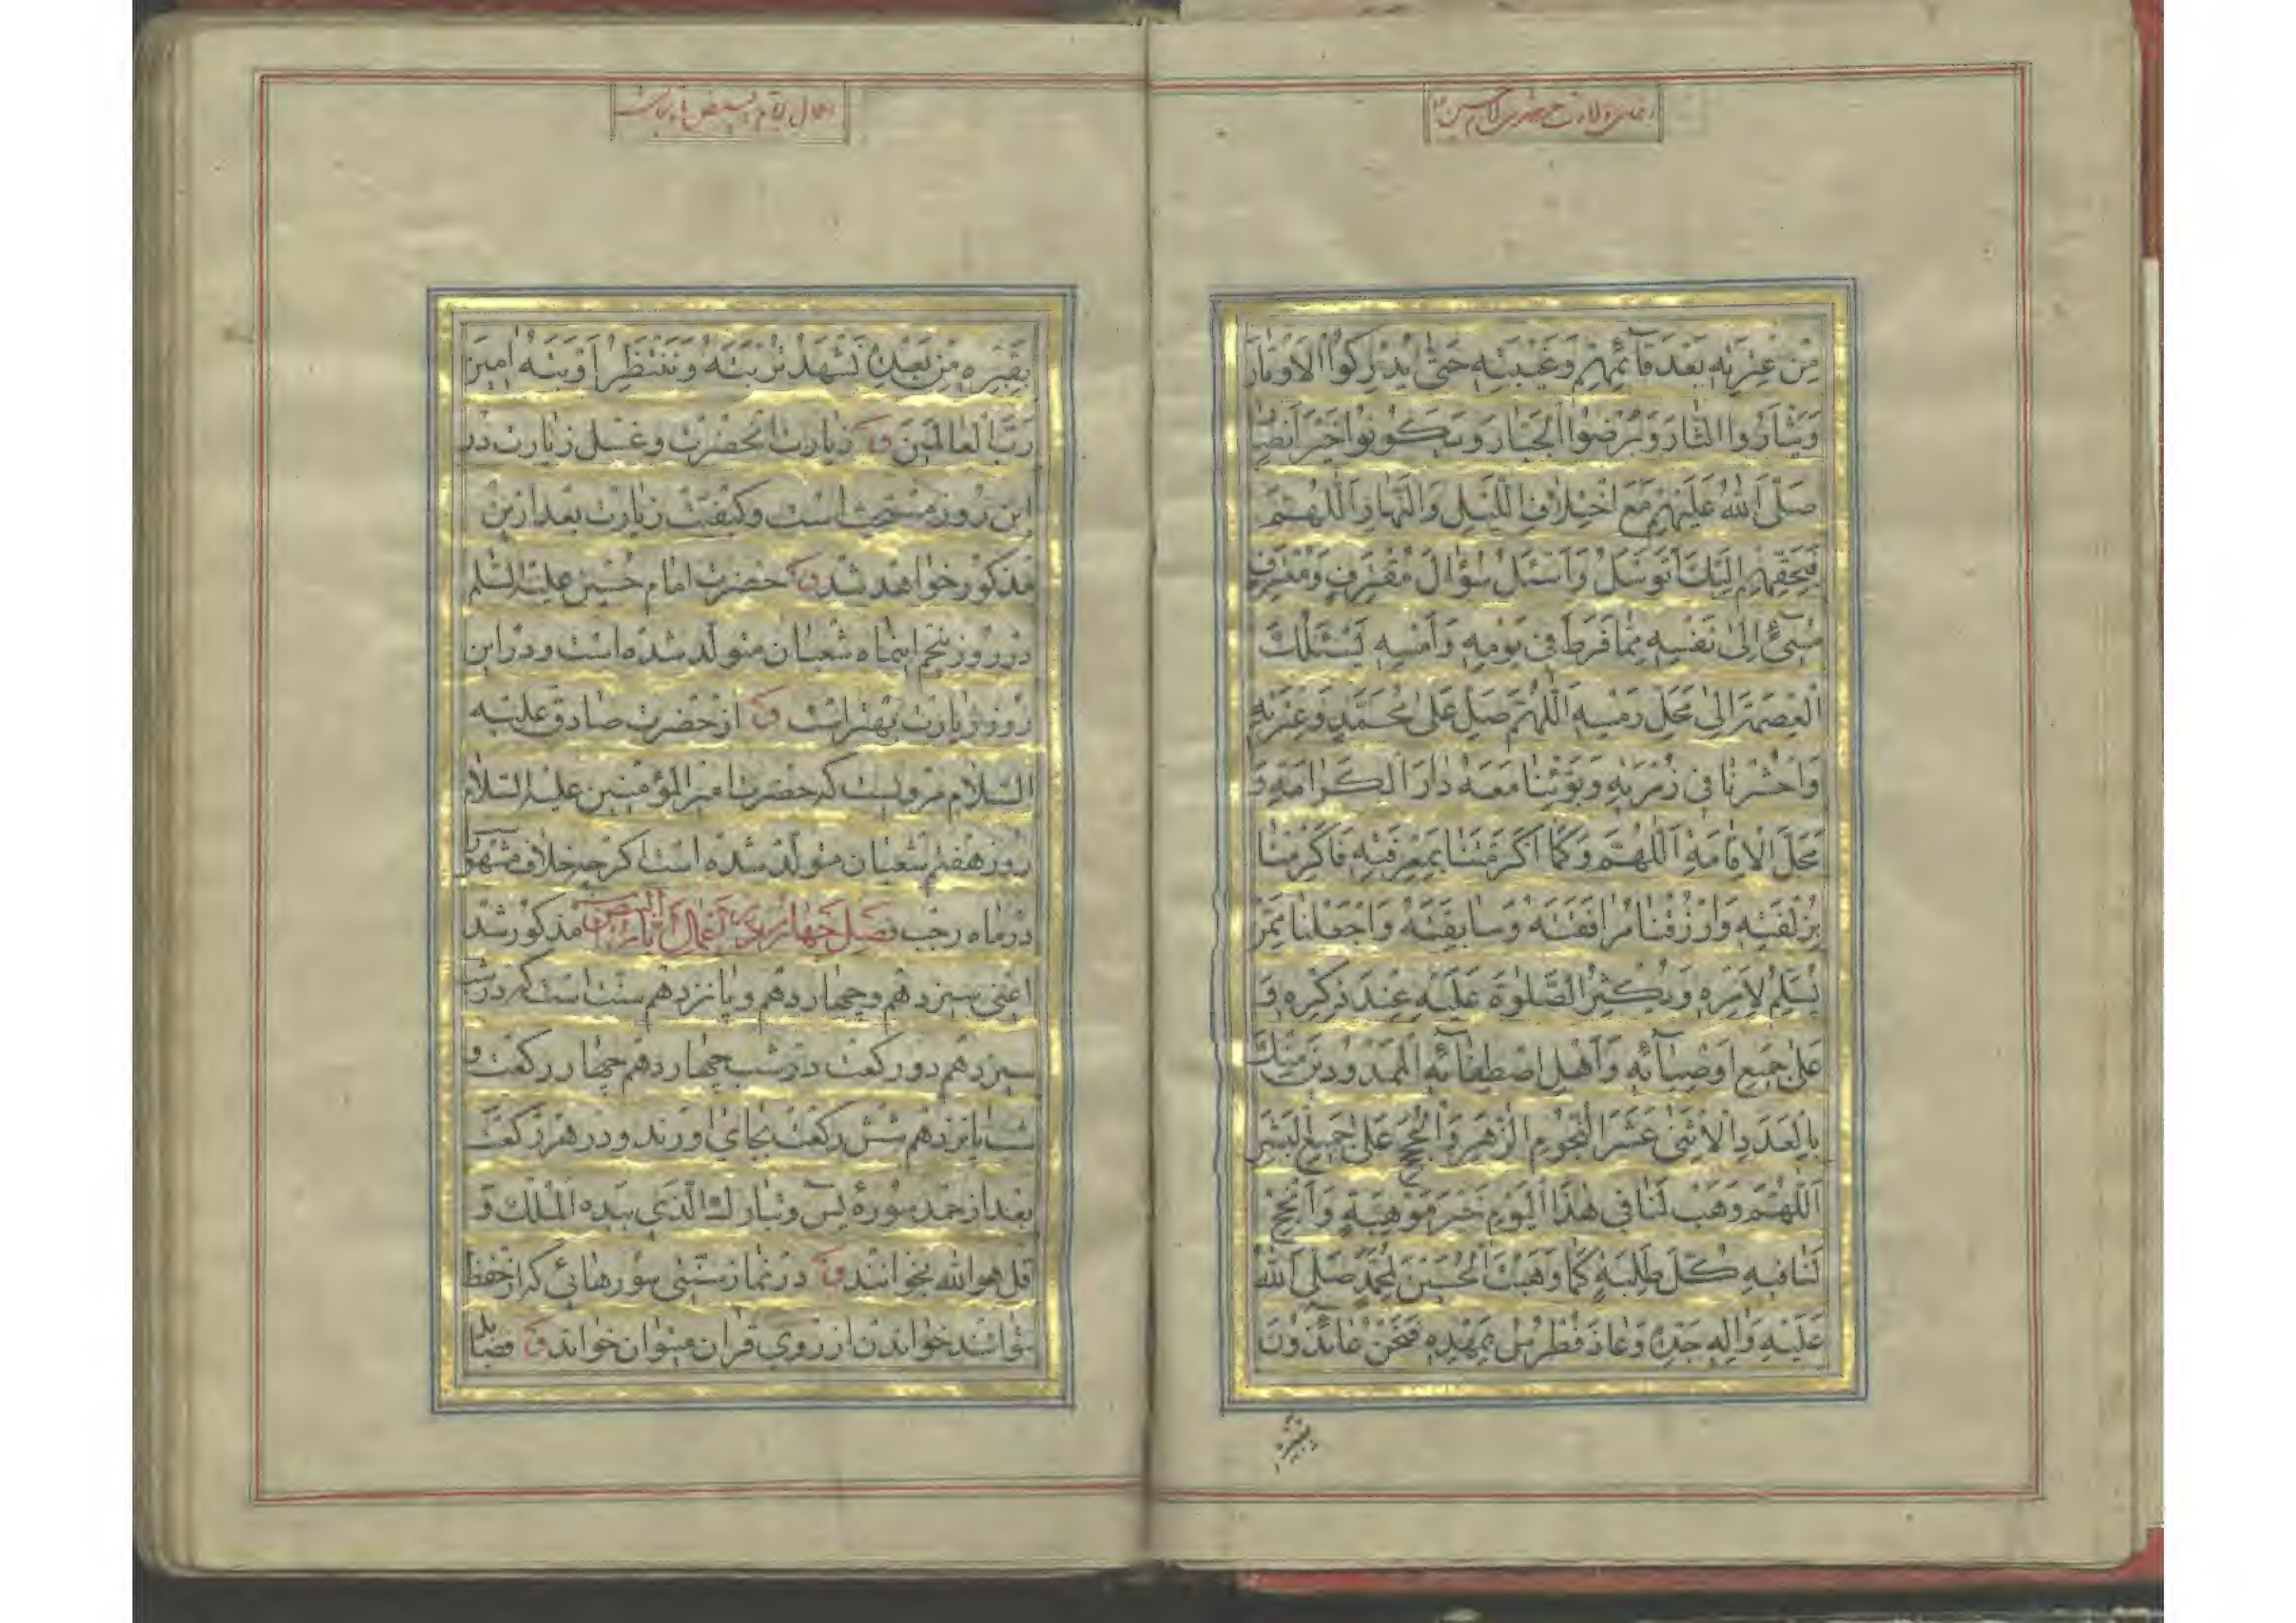 اعمال ولادت حضرت امام حسین
مِنْ عِتْرَتِهِ بَعْدَ قآئِمِهِمْ وَغَيْبَتِهِ حَتّىٰ يُدْرِكُوا الْاَوْتارَ
وَيَثْاَرُوا الثّارَ وَيُرْضُوا الْجَبّارَ وَيَكُونُوا خَيْرَ اَنْصارٍ
صَلَّى اللهُ عَلَيْهِمْ مَعَ اخْتِلافِ اللَّيْلِ وَالنَّهارِ اَللّهُمَّ
فَبِحَقِّهِمْ اِلَيْكَ اَتَوَسَّلُ وَاَسْئَلُ سُؤالَ مُقْتَرِفٍ وَمُعْتَرِفٍ
مُسيٓئٍ اِلىٰ نَفْسِهِ مِمّا فَرَّطَ في يَوْمِهِ وَاَمْسِهِ يَسْئَلُكَ
الْعِصْمَةَ اِلىٰ مَحَلِّ رَمْسِهِ اَللّهُمَّ صَلِّ عَلىٰ مُحَمَّدٍ وَعِتْرَتِهِ
وَاحْشُرْنا في زُمْرَتِهِ وَبَوِّئْنا مَعَهُ دارَ الْكَرامَةِ وَ
مَحَلَّ الْاِقامَةِ اَللّهُمَّ وَكَما اَكْرَمْتَنا بِمَعْرِفَتِهِ فَاَكْرِمْنا
بِزُلْفَتِهِ وَارْزُقْنا مُرافَقَتَهُ وَسابِقَتَهُ وَاجْعَلْنا مِمَّنْ
يُسَلِّمُ لِاَمْرِهِ وَيُكْثِرُ الصَّلوٰةَ عَلَيْهِ عِنْدَ ذِكْرِهِ وَ
عَلىٰ جَميعِ اَوْصِيآئِهِ وَاَهْلِ اصْطِفآئِهِ الْمَمْدُودينَ مِنْكَ
بِالْعَدَدِ الْاِثْنىٰ عَشَرَ النُّجُومِ الزُّهَرِ وَالْحُجَجِ عَلىٰ جَميعِ الْبَشَرِ
اَللّهُمَّ وَهَبْ لَنا في هٰذَا الْيَوْمِ خَيْرَ مَوْهِبَةٍ وَاَنْجِحْ
لَنا فيهِ كُلَّ طَلِبَةٍ كَما وَهَبْتَ الْحُسَيْنَ لِمُحَمَّدٍ صَلَّى اللهُ
عَلَيْهِ وَاٰلِهِ جَدِّهِ وَعاذَ فُطْرُسُ بِمَهْدِهِ فَنَحْنُ عآئِذُونَ
بقبره
اعمال ایام بیض شعبان
بِقَبْرِهِ مِنْ بَعْدِهِ نَشْهَدُ تُرْبَتَهُ وَنَنْتَظِرُ اَوْبَتَهُ اٰمينَ
رَبَّ الْعالَمينَ ق زیارت انحضرت وغسل زیارت در
این روز مستحب است وکیفیت زیارت بعد ازین
مذکور خواهد شد ق حضرت امام حسین علیه السّلم
در روز پنجم اینماه شعبان متولّد شده است ودر این
روز زیارت بهتر است ق از حضرت صادق علیه
السّلام مرویست که حضرت امیر المؤمنین علیه السّلام
روز هفتم شعبان متولّد شده است اگرچه خلاف مشهور
در ماه رجب فصل چهارم در اعمال ایام البیض مذکور شد
اعنی سیزدهم وچهاردهم وپانزدهم سنت است که در شب
سیزدهم دو رکعت در شب چهاردهم چهار رکعت و
شب پانزدهم شش رکعت بجای اورند ودر هر رکعت
بعد از حمد سورهٔ یٓس وتبارك الّذی بیده الملك و
قل هو الله بخوانند ق در نماز سنّتی سورهائی که از حفظ
نتوانند خواندن از روی قران میتوان خواند ق فضایل